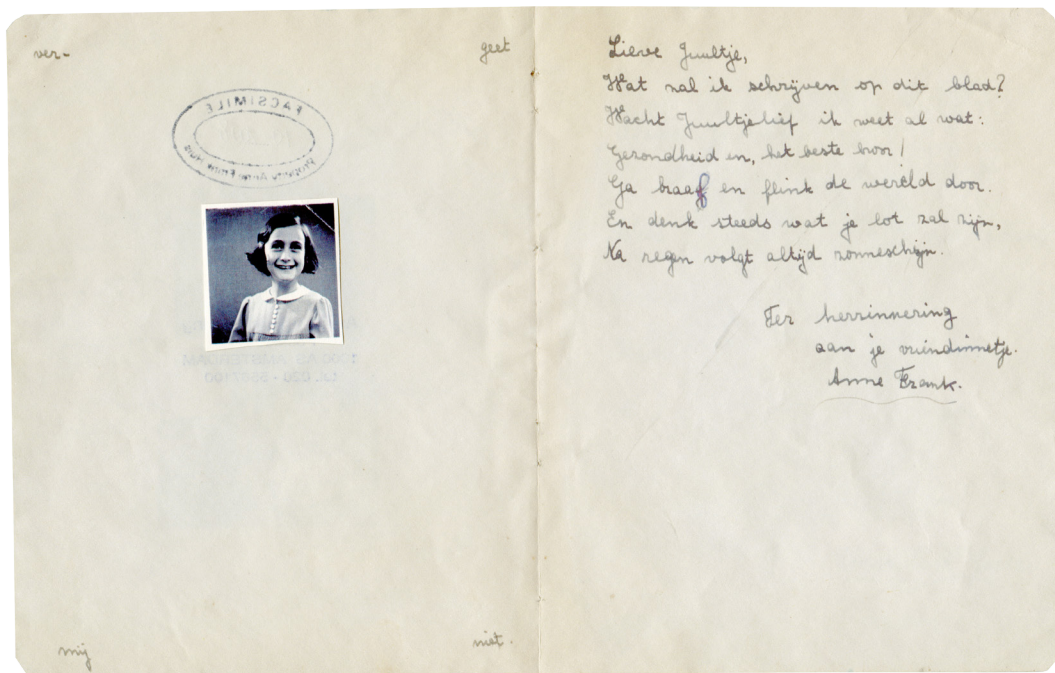 ver-
geet
FACSIMILE
Property Anne Frank Huis
AMSTERDAM
mij
niet.
Lieve Juultje,
Wat zal ik schrijven op dit blad?
Wacht Juultjelief ik weet al wat:
Gezondheid en, het beste hoor!
Ga braaf en flink de wereld door.
En denk steeds wat je lot zal zijn,
Na regen volgt altijd zonneschijn.
Ter herrinnering
aan je vriendinnetje.
Anne Frank.